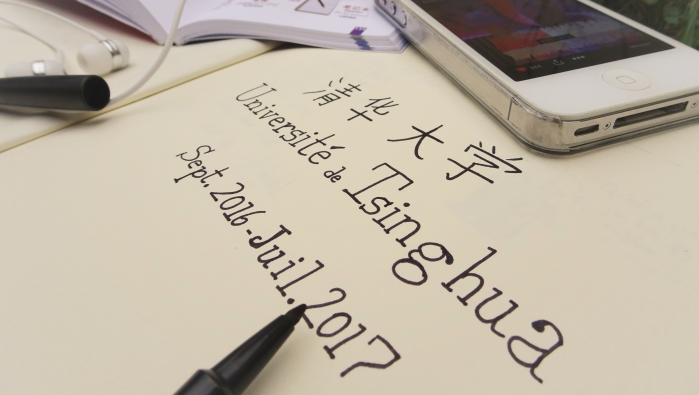 清华大学
Université de Tsinghua
Sept. 2016-Juil. 2017